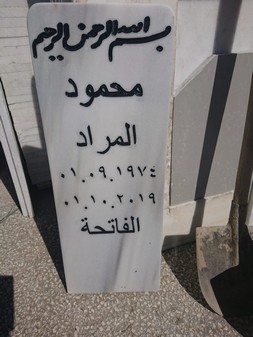 بسم الله الرحمن الرحيم
محمود
المراد
٠١.٠٩.١٩٧٤
٠١.٠١.٢٠١٩
الفاتحة